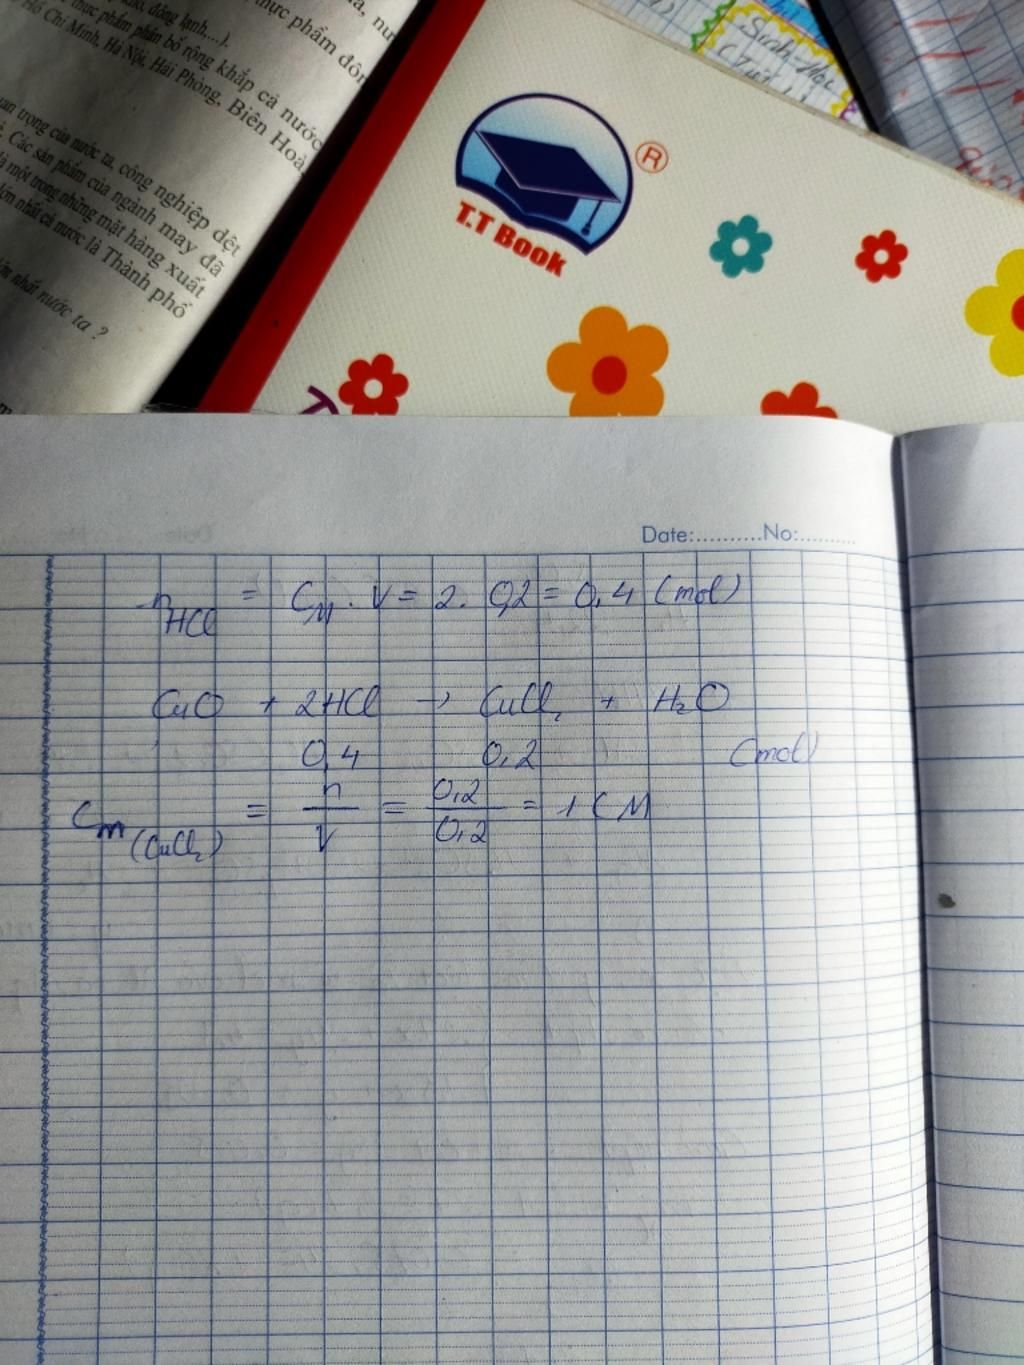 kho, đông lạnh,...).
thực phẩm phân bố rộng khắp cả nước
Hồ Chí Minh, Hà Nội, Hải Phòng, Biên Hoà,
thực phẩm đôn
trọng của nước ta, công nghiệp dệt
Các sản phẩm của ngành may đã
là một trong những mặt hàng xuất
lớn nhất cả nước là Thành phố
nhất nước ta ?
T.T Book
®
Sinh Học
Date:..........No:.........
nHCl = CM . V = 2. 0,2 = 0,4 (mol)
CuO + 2HCl → CuCl2 + H2O
0,4 0,2 (mol)
Cm (CuCl2) = n/V = 0,2/0,2 = 1 (M